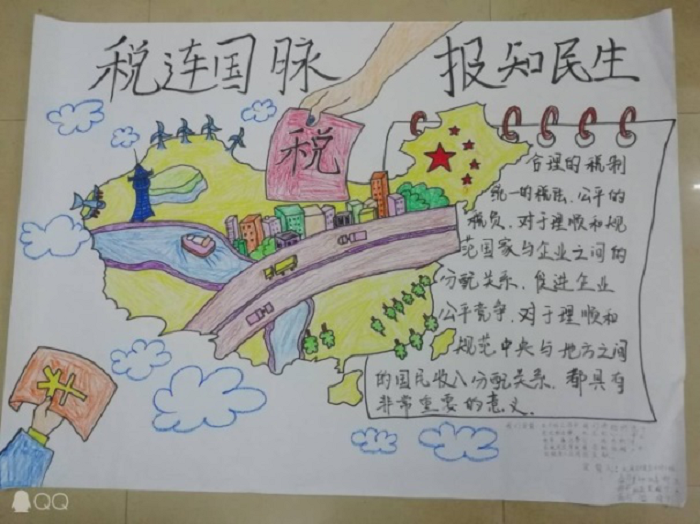 税连国脉 报知民生
税
合理的税制
统一的税法、公平的
税负,对于理顺和规
范国家与企业之间的
分配关系,促进企业
公平竞争,对于理顺和
规范中央与地方之间
的国民收入分配关系,都具有
非常重要的意义.
QQ